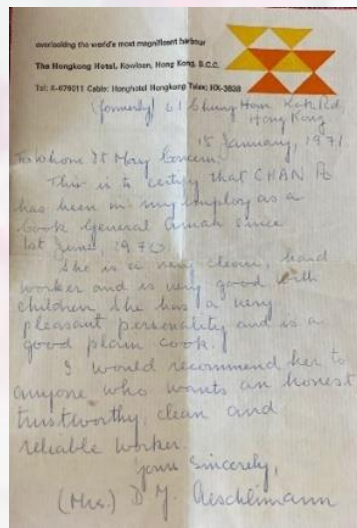 overlooking the world's most magnificent harbour
The Hongkong Hotel, Kowloon, Hong Kong, B.C.C.
Tel: K-679011 Cable: Honghotel Hongkong Telex: HX-3838
(formerly) 61 Chung Hom Kok Rd,
Hong Kong
15 January, 1971.
To whome It May Concern
This is to certify that CHAN Po
has been in my employ as a
Cook General Amah since
1st June, 1970
She is a very clean, hard
worker and is very good with
children. She has a very
pleasant personality and is a
good plain cook.
I would recommend her to
anyone who wants an honest
trustworthy, clean and
reliable worker.
Yours Sincerely,
(Mrs.) D Y. Aeschlimann